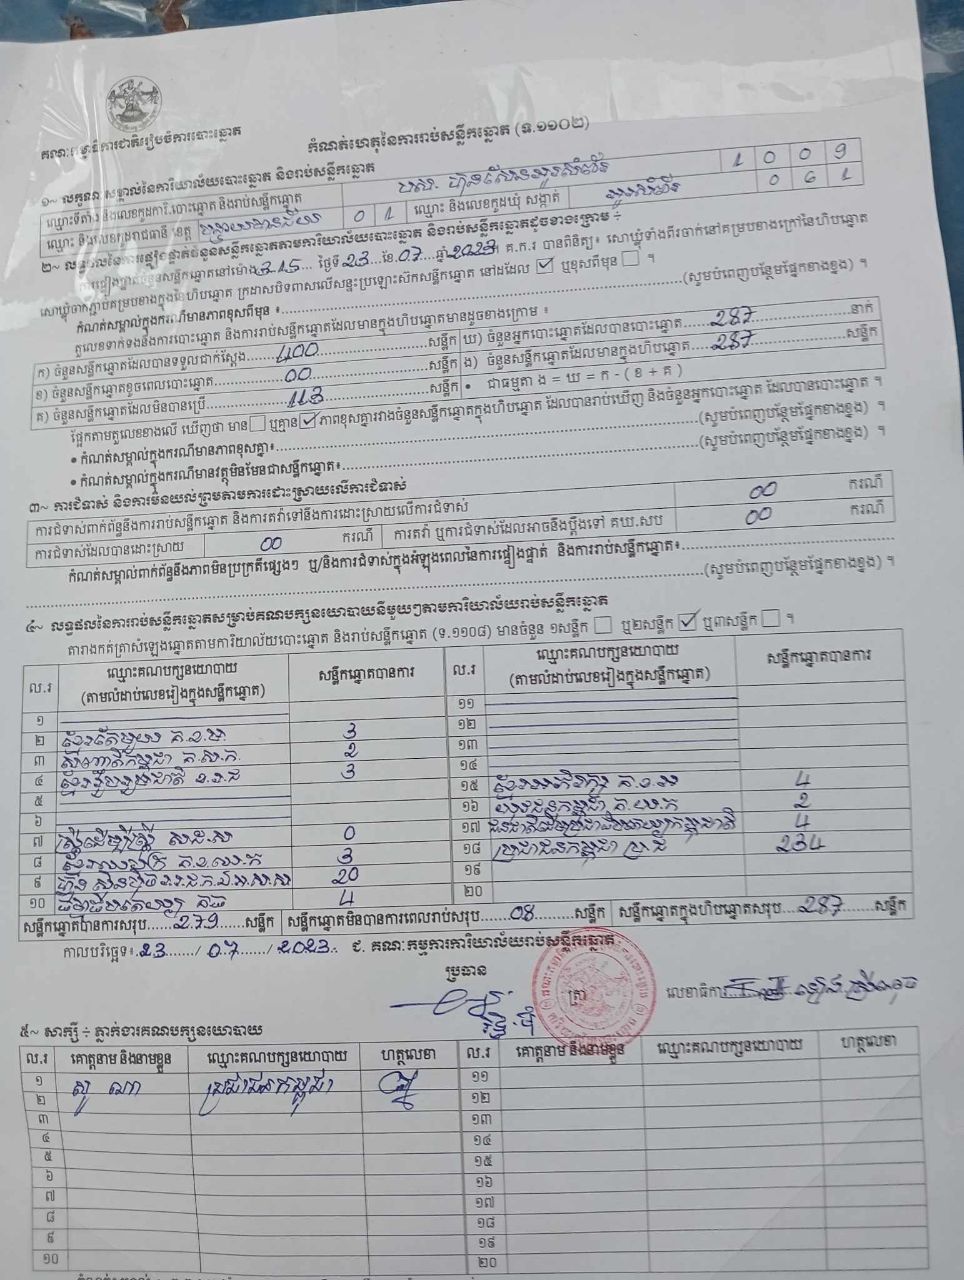 គណៈកម្មាធិការជាតិរៀបចំការបោះឆ្នោត
កំណត់ហេតុនៃការរាប់សន្លឹកឆ្នោត (ទ.១១០២)
១~ លក្ខណៈសម្គាល់នៃការិយាល័យបោះឆ្នោត និងរាប់សន្លឹកឆ្នោត
ឈ្មោះទីតាំង និងលេខកូដការិ.បោះឆ្នោត និងរាប់សន្លឹកឆ្នោត 1 0 0 9
ឈ្មោះ និងលេខកូដរាជធានី ខេត្ត បន្ទាយមានជ័យ 0 1 ឈ្មោះ និងលេខកូដឃុំ សង្កាត់ 0 6 1
២~ លទ្ធផលនៃការផ្ទៀងផ្ទាត់ចំនួនសន្លឹកឆ្នោតតាមការិយាល័យបោះឆ្នោត និងរាប់សន្លឹកឆ្នោតដូចខាងក្រោម ÷
ការផ្ទៀងផ្ទាត់ចំនួនសន្លឹកឆ្នោតនៅម៉ោង 3.15 ថ្ងៃទី 23 ខែ 07 ឆ្នាំ 2023 គ.ក.រ បានពិនិត្យ៖ សោឃ្មុំទាំងពីរចាក់នៅគម្របខាងក្រៅនៃហិបឆ្នោត
សោឃ្មុំចាក់ភ្ជាប់គម្របខាងក្នុងនៃហិបឆ្នោត ក្រដាសបិទពាសលើសន្ទះប្រឡោះស៊កសន្លឹកឆ្នោត នៅដដែល ☑ ឬខុសពីមុន ☐ ។
កំណត់សម្គាល់ក្នុងករណីមានភាពខុសពីមុន ៖ (សូមបំពេញបន្ថែមផ្នែកខាងខ្នង) ។
តួលេខទាក់ទងនឹងការបោះឆ្នោត និងការរាប់សន្លឹកឆ្នោតដែលមានក្នុងហិបឆ្នោតមានដូចខាងក្រោម ៖
ក) ចំនួនសន្លឹកឆ្នោតដែលបានទទួលជាក់ស្តែង 400 សន្លឹក ឃ) ចំនួនអ្នកបោះឆ្នោតដែលបានបោះឆ្នោត 287 នាក់
ខ) ចំនួនសន្លឹកឆ្នោតខូចពេលបោះឆ្នោត 00 សន្លឹក ង) ចំនួនសន្លឹកឆ្នោតដែលមានក្នុងហិបឆ្នោត 287 សន្លឹក
គ) ចំនួនសន្លឹកឆ្នោតដែលមិនបានប្រើ 113 សន្លឹក • ជាធម្មតា ង = ឃ = ក - ( ខ + គ )
ផ្អែកតាមតួលេខខាងលើ ឃើញថា មាន ☐ ឬគ្មាន ☑ ភាពខុសគ្នារវាងចំនួនសន្លឹកឆ្នោតក្នុងហិបឆ្នោត ដែលបានរាប់ឃើញ និងចំនួនអ្នកបោះឆ្នោត ដែលបានបោះឆ្នោត ។
• កំណត់សម្គាល់ក្នុងករណីមានភាពខុសគ្នា៖ (សូមបំពេញបន្ថែមផ្នែកខាងខ្នង) ។
• កំណត់សម្គាល់ក្នុងករណីមានវត្ថុមិនមែនជាសន្លឹកឆ្នោត៖ (សូមបំពេញបន្ថែមផ្នែកខាងខ្នង) ។
៣~ ការជំទាស់ និងការមិនយល់ព្រមតាមការដោះស្រាយលើការជំទាស់
ការជំទាស់ពាក់ព័ន្ធនឹងការរាប់សន្លឹកឆ្នោត និងការតវ៉ាទៅនឹងការដោះស្រាយលើការជំទាស់ 00 ករណី
ការជំទាស់ដែលបានដោះស្រាយ 00 ករណី ការតវ៉ា ឬការជំទាស់ដែលអាចនឹងប្តឹងទៅ គឃ.សប 00 ករណី
កំណត់សម្គាល់ពាក់ព័ន្ធនឹងភាពមិនប្រក្រតីផ្សេងៗ ឬ/និងការជំទាស់ក្នុងអំឡុងពេលនៃការផ្ទៀងផ្ទាត់ និងការរាប់សន្លឹកឆ្នោត៖
(សូមបំពេញបន្ថែមផ្នែកខាងខ្នង) ។
៤~ លទ្ធផលនៃការរាប់សន្លឹកឆ្នោតសម្រាប់គណបក្សនយោបាយនីមួយៗតាមការិយាល័យរាប់សន្លឹកឆ្នោត
តារាងកត់ត្រាសំឡេងឆ្នោតតាមការិយាល័យបោះឆ្នោត និងរាប់សន្លឹកឆ្នោត (ទ.១១០៨) មានចំនួន ១សន្លឹក ☐ ឬ២សន្លឹក ☑ ឬ៣សន្លឹក ☐ ។
ល.រ ឈ្មោះគណបក្សនយោបាយ (តាមលំដាប់លេខរៀងក្នុងសន្លឹកឆ្នោត) សន្លឹកឆ្នោតបានការ ល.រ ឈ្មោះគណបក្សនយោបាយ (តាមលំដាប់លេខរៀងក្នុងសន្លឹកឆ្នោត) សន្លឹកឆ្នោតបានការ
១ ១១
២ ខ្មែរតែមួយ 3 ១២
៣ 2 ១៣
៤ 3 ១៤
៥ ១៥ 4
៦ ១៦ យុវជនកម្ពុជា គ.យ.ក 2
៧ ស្ត្រីដើម្បីស្ត្រី 0 ១៧ 4
៨ 3 ១៨ ប្រជាជនកម្ពុជា 234
៩ ហ៊្វុនស៊ិនប៉ិច 20 ១៩
១០ 4 ២០
សន្លឹកឆ្នោតបានការសរុប 279 សន្លឹក សន្លឹកឆ្នោតមិនបានការពេលរាប់សរុប 08 សន្លឹក សន្លឹកឆ្នោតក្នុងហិបឆ្នោតសរុប 287 សន្លឹក
កាលបរិច្ឆេទ៖ 23 / 07 / 2023 ជ. គណៈកម្មការការិយាល័យរាប់សន្លឹកឆ្នោត
ប្រធាន ត្រា លេខាធិការ
៥~ សាក្សី ÷ ភ្នាក់ងារគណបក្សនយោបាយ
ល.រ គោត្តនាម និងនាមខ្លួន ឈ្មោះគណបក្សនយោបាយ ហត្ថលេខា ល.រ គោត្តនាម និងនាមខ្លួន ឈ្មោះគណបក្សនយោបាយ ហត្ថលេខា
១ ប្រជាជនកម្ពុជា ១១
២ ១២
៣ ១៣
៤ ១៤
៥ ១៥
៦ ១៦
៧ ១៧
៨ ១៨
៩ ១៩
១០ ២០